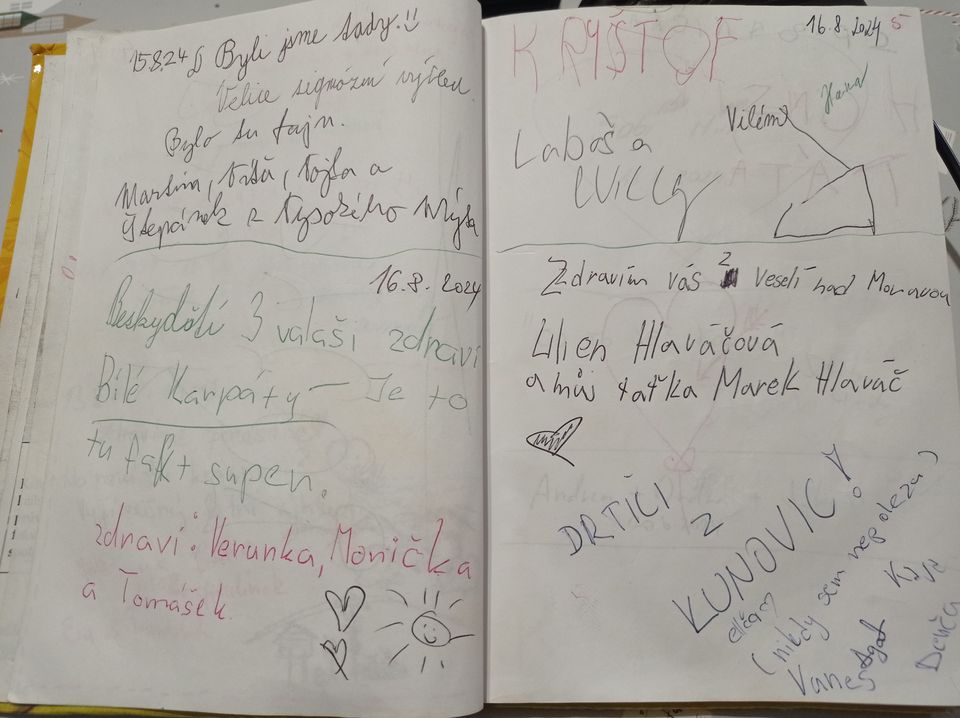 15.8.24 Byli jsme tady.!!
Velice signózní výhled.
Bylo tu fajn.
Martina, Vojta a
Štepánek z Vysokého Mýta
16.8.2024
Beskydští 3 valaši zdraví
Bílé Karpáty - Je to
tu fakt super.
zdraví: Verunka, Monička
a Tomášek
16.8.2024
KRYŠTOF
Vilém Hana
Laboš a
Willy
Zdravím vás z Veselí nad Moravou
Lilien Hlaváčová
a můj taťka Marek Hlaváč
DRTIČI
Z
KUNOVIC!
(nikdy sem nepoleza)
Vanes